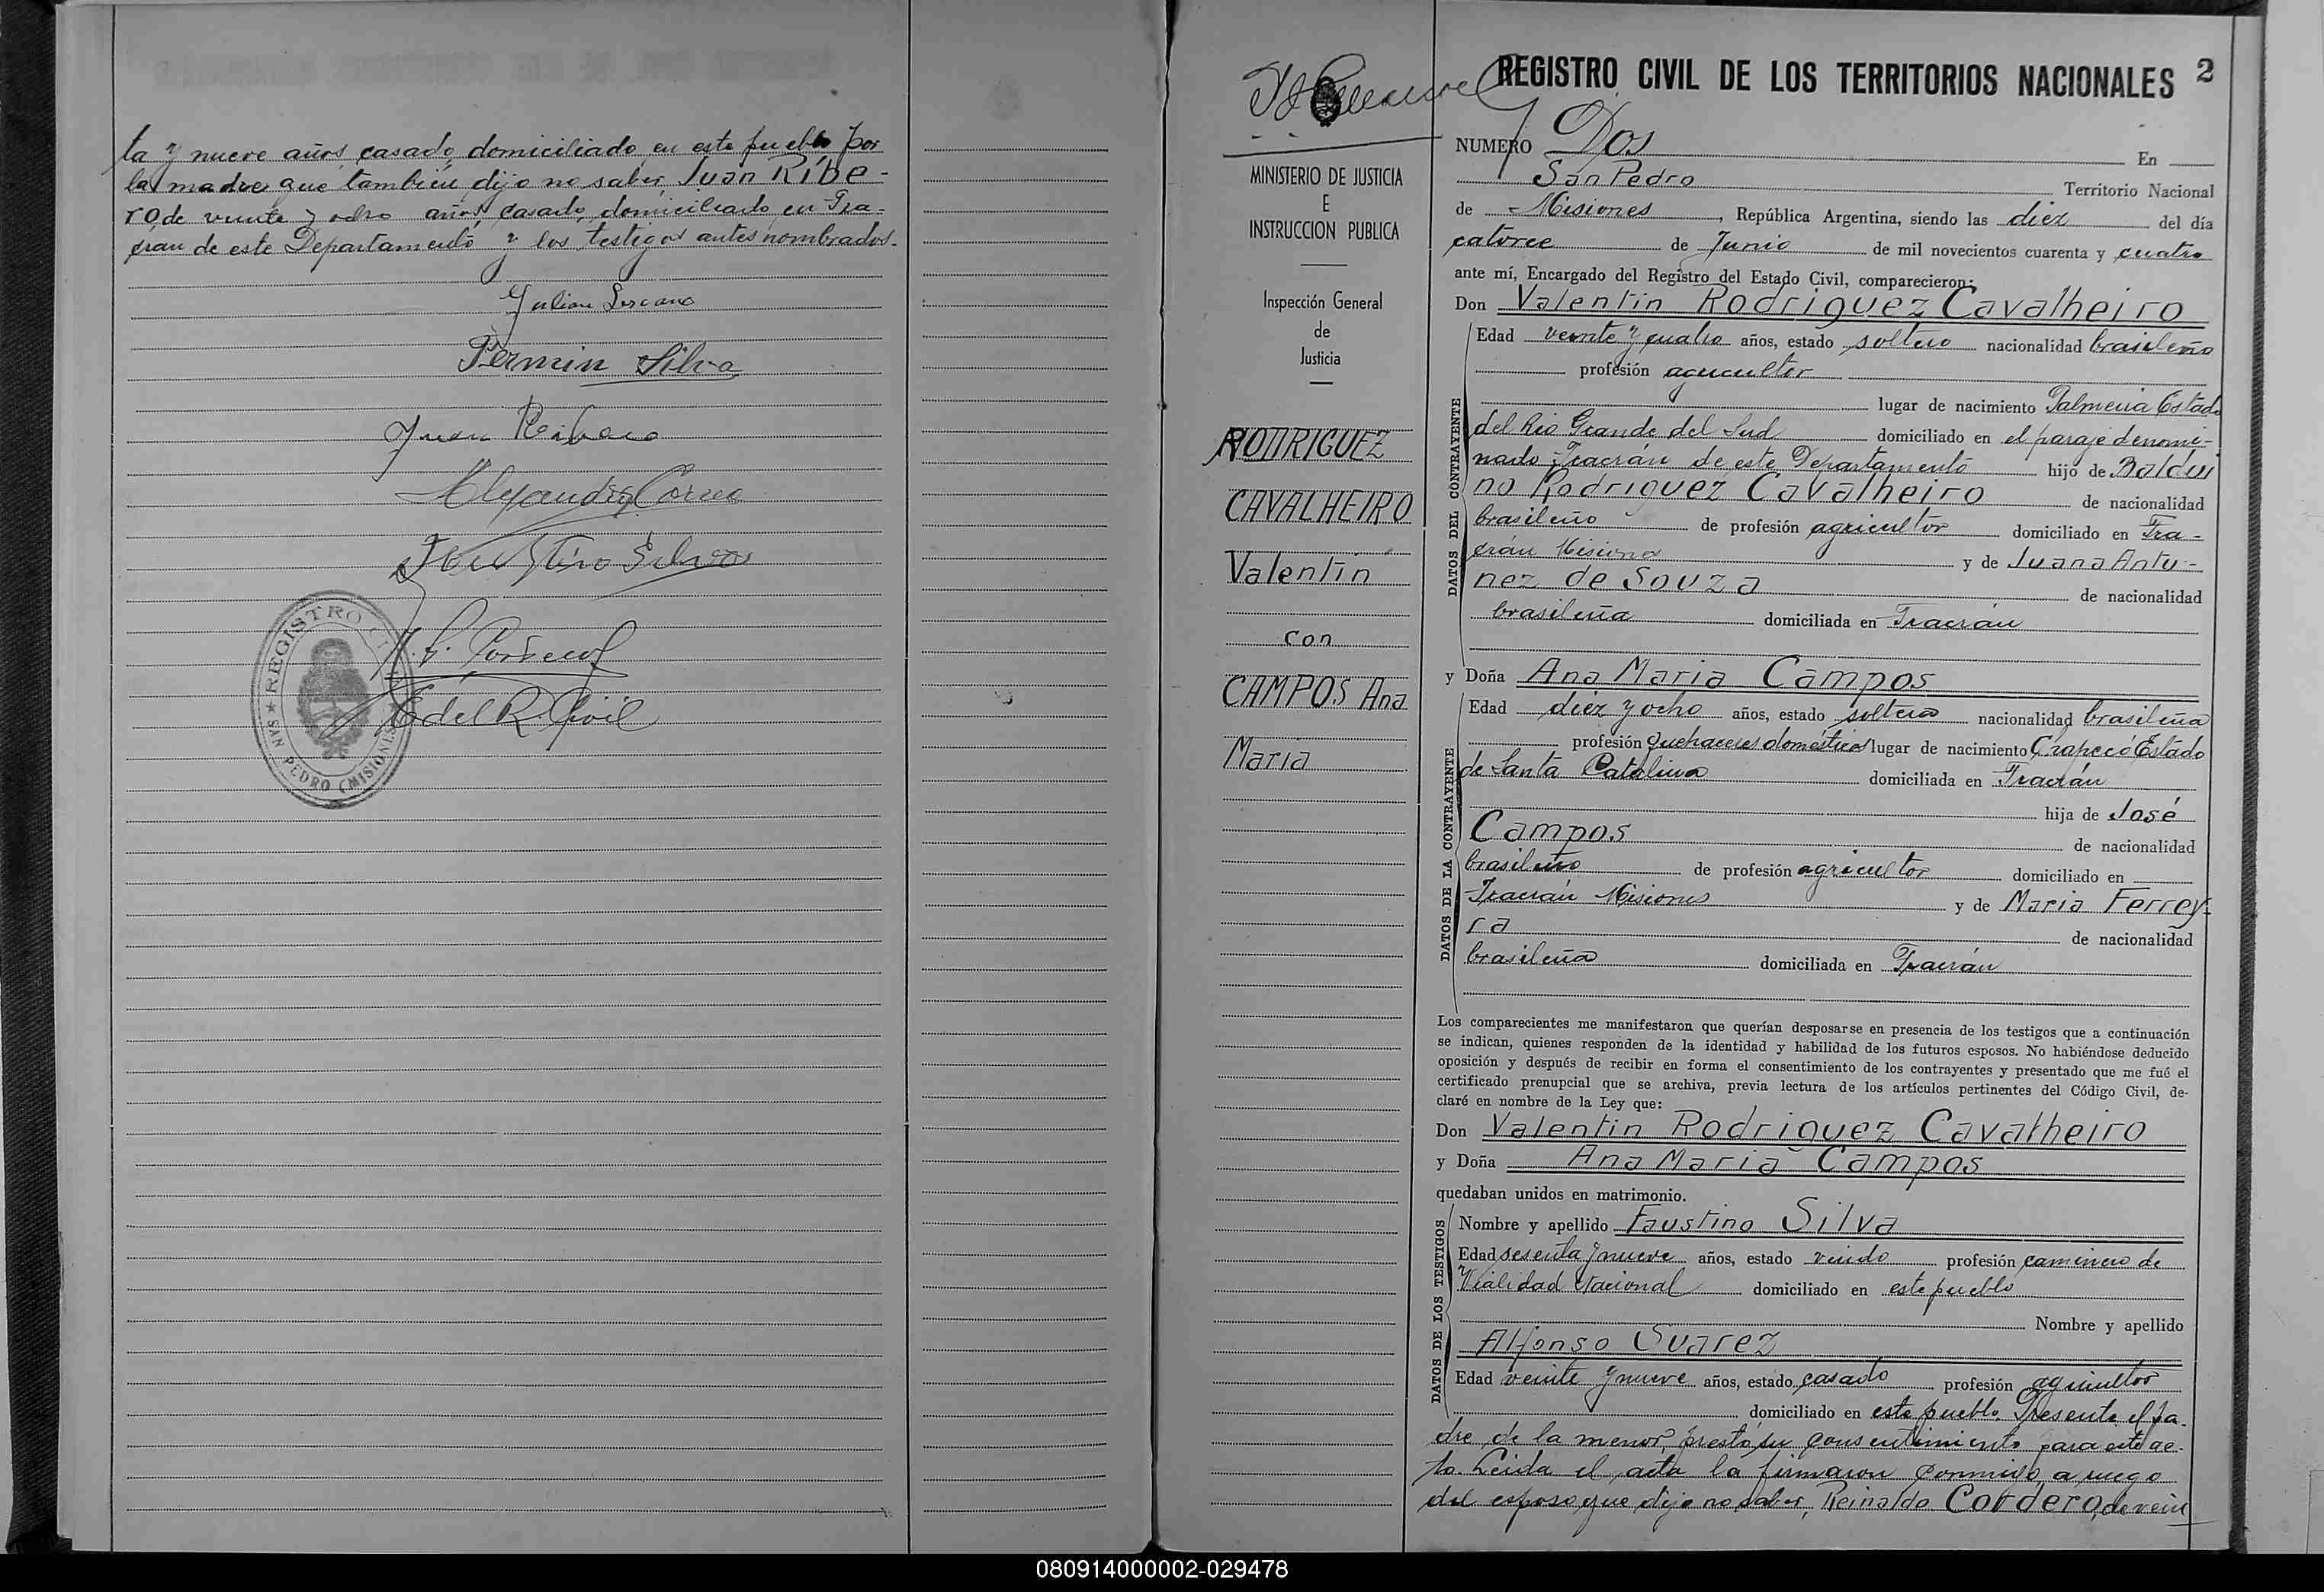 ta y nueve años, casado, domiciliado en este pueblo, por
la madre que también dijo no saber, Juan Ribe-
ro, de veinte y ocho años, casado, domiciliado en Tra-
crán de este Departamento y los testigos antes nombrados.
Fermin Silva
Juan Ribero
Alejandro Correa
Faustino Silva
E del R. Civil
REGISTRO CIVIL
SAN PEDRO (MISIONES)
REGISTRO CIVIL DE LOS TERRITORIOS NACIONALES 2
MINISTERIO DE JUSTICIA
E
INSTRUCCION PUBLICA
Inspección General
de
Justicia
RODRIGUEZ
CAVALHEIRO
Valentin
con
CAMPOS Ana
Maria
NUMERO Dos En
San Pedro Territorio Nacional
de Misiones, República Argentina, siendo las diez del día
catorce de Junio de mil novecientos cuarenta y cuatro
ante mí, Encargado del Registro del Estado Civil, comparecieron:
Don Valentin Rodriguez Cavalheiro
DATOS DEL CONTRAYENTE
Edad veinte y cuatro años, estado soltero nacionalidad brasileño
profesión agricultor
lugar de nacimiento Palmeira Estado
del Rio Grande del Sud domiciliado en el paraje denomi-
nado Tracrán de este Departamento hijo de Baldui
no Rodriguez Cavalheiro de nacionalidad
brasileño de profesión agricultor domiciliado en Tra-
crán Misiones y de Juana Antu-
nez de Souza de nacionalidad
brasileña domiciliada en Tracrán
y Doña Ana Maria Campos
DATOS DE LA CONTRAYENTE
Edad diez y ocho años, estado soltera nacionalidad brasileña
profesión quehaceres domésticos lugar de nacimiento Chapecó Estado
de Santa Catalina domiciliada en Tracrán
hija de José
Campos de nacionalidad
brasileño de profesión agricultor domiciliado en
Tracrán Misiones y de Maria Ferrey-
ra de nacionalidad
brasileña domiciliada en Tracrán
Los comparecientes me manifestaron que querían desposarse en presencia de los testigos que a continuación
se indican, quienes responden de la identidad y habilidad de los futuros esposos. No habiéndose deducido
oposición y después de recibir en forma el consentimiento de los contrayentes y presentado que me fué el
certificado prenupcial que se archiva, previa lectura de los artículos pertinentes del Código Civil, de-
claré en nombre de la Ley que:
Don Valentin Rodriguez Cavalheiro
y Doña Ana Maria Campos
quedaban unidos en matrimonio.
DATOS DE LOS TESTIGOS
Nombre y apellido Faustino Silva
Edad sesenta y nueve años, estado viudo profesión caminero de
Vialidad Nacional domiciliado en este pueblo
Nombre y apellido
Alfonso Suarez
Edad veinte y nueve años, estado casado profesión agricultor
domiciliado en este pueblo. Presente el pa-
dre de la menor, prestó su consentimiento para este ac-
to. Leida el acta la firmaron conmigo, a ruego
del esposo que dijo no saber, Reinaldo Cordero, de vein
080914000002-029478